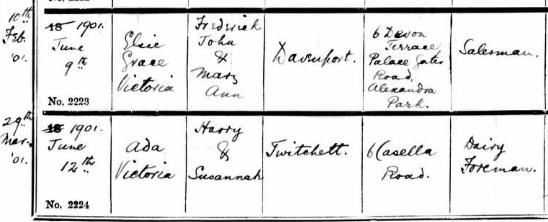 10th
Feb.
'01.
18 1901.
June
9th
No. 2223
Elsie
Grace
Victoria
Frederick
John
&
Mary
Ann
Davenport.
6 Devon
Terrace
Palace Gates
Road,
Alexandra
Park.
Salesman.
29th
Mar.
'01.
18 1901.
June
12th
No. 2224
Ada
Victoria
Harry
&
Susannah
Twitchett.
6 Casella
Road.
Dairy
Foreman.